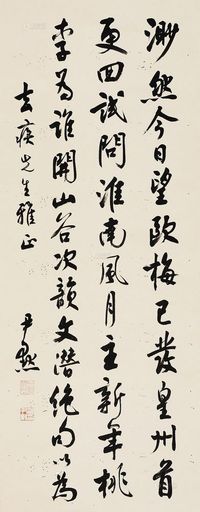 渺然今日望歐梅已發皇州首
更回試問淮南風月主新年桃
李為誰開山谷次韻文潛絕句以為
去疾先生雅正 尹默